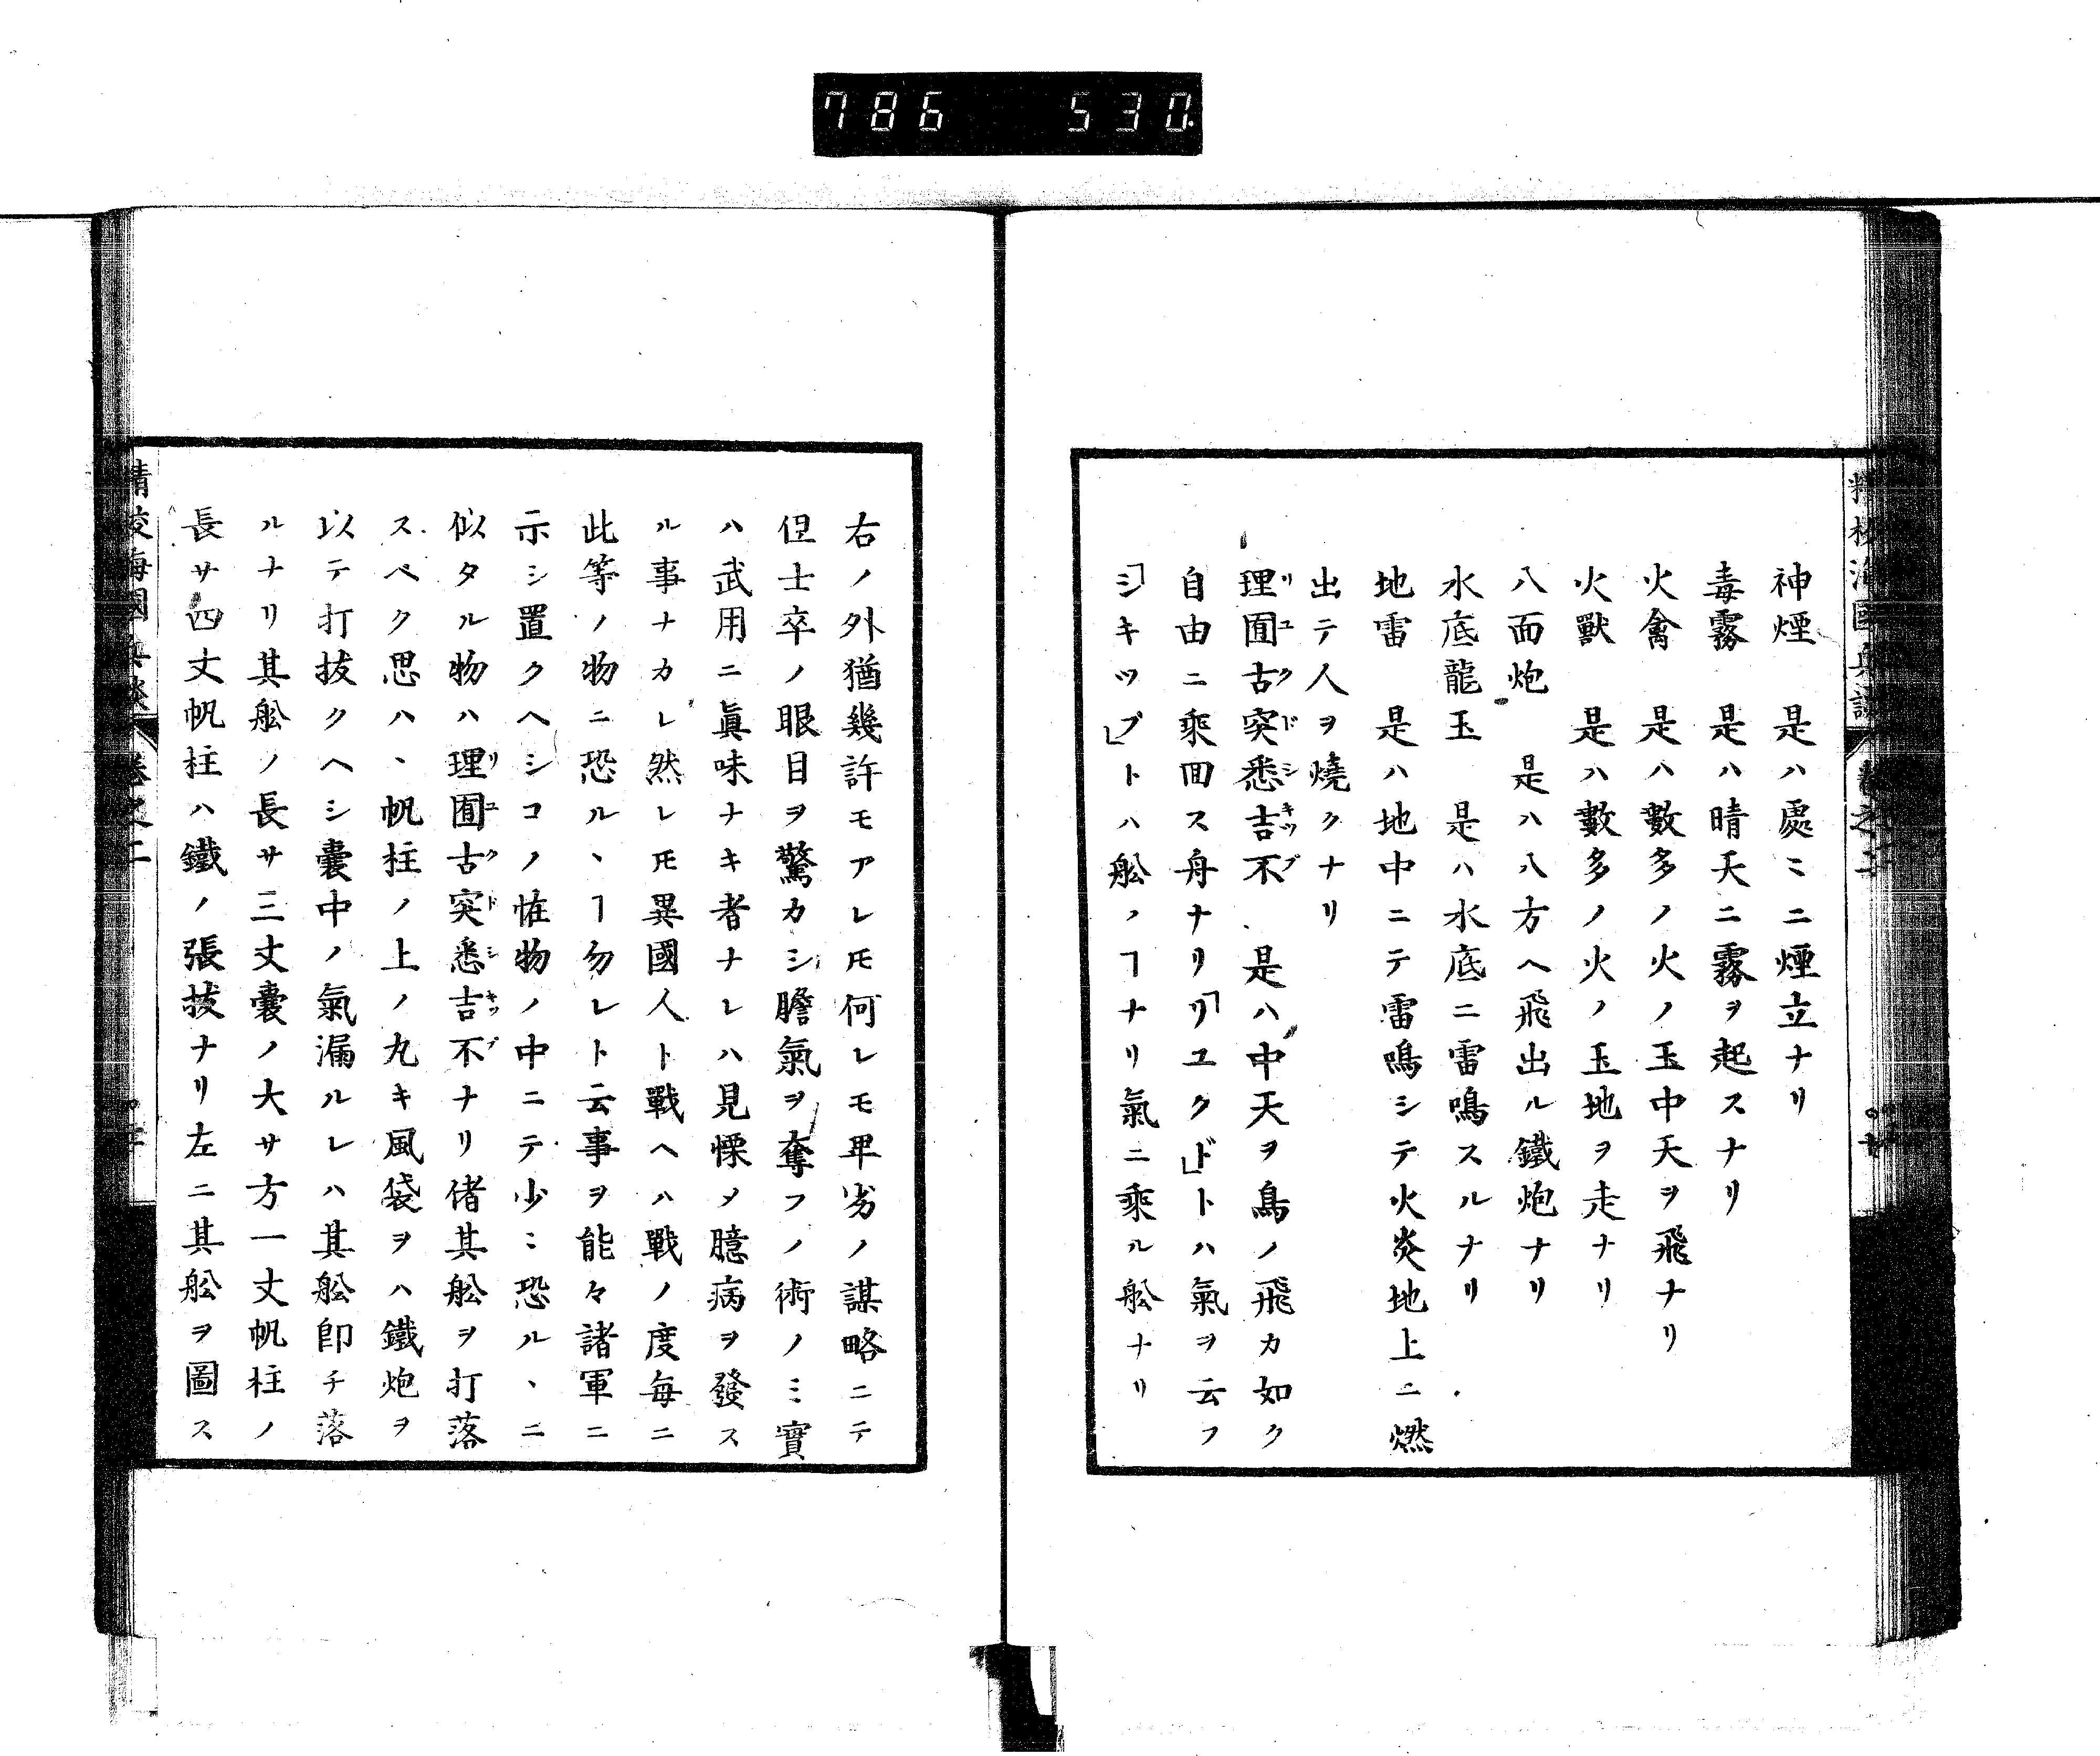 786 530
神煙　是ハ處ニ二煙立ナリ
毒霧　是ハ晴天ニ霧ヲ起スナリ
火禽　是ハ數多ノ火ノ玉中天ヲ飛ナリ
火獸　是ハ數多ノ火ノ玉地ヲ走ナリ
八面炮　是ハ八方ヘ飛出ル鐵炮ナリ
水底龍玉　是ハ水底ニ雷鳴スルナリ
地雷　是ハ地中ニテ雷鳴シテ火炎地上ニ燃
出テ人ヲ燒クナリ
理囿古突悉吉不　是ハ中天ヲ鳥ノ飛カ如ク
リユクドシキツブ
自由ニ乘囬ス舟ナリ「リユクド」トハ氣ヲ云フ
「シキツブ」トハ舩ノヿナリ氣ニ乘ル舩ナリ
右ノ外猶幾許モアレ𪜈何レモ卑劣ノ謀略ニテ
但士卒ノ眼目ヲ驚カシ膽氣ヲ奪フノ術ノミ實
ハ武用ニ眞味ナキ者ナレハ見慄メ臆病ヲ發ス
ル事ナカレ然レ𪜈異國人ト戰ヘハ戰ノ度毎ニ
此等ノ物ニ恐ルヽヿ勿レト云事ヲ能々諸軍ニ
示シ置クヘシコノ恠物ノ中ニテ少ミ恐ルヽニ
似タル物ハ理囿古突悉吉不ナリ偖其舩ヲ打落
リユクドシキツブ
スベク思ハヽ帆柱ノ上ノ丸キ風袋ヲハ鐵炮ヲ
以テ打拔クヘシ囊中ノ氣漏ルレハ其舩卽チ落
ルナリ其舩ノ長サ三丈囊ノ大サ方一丈帆柱ノ
長サ四丈帆柱ハ鐵ノ張拔ナリ左ニ其舩ヲ圖ス
精校海國兵談　卷之二